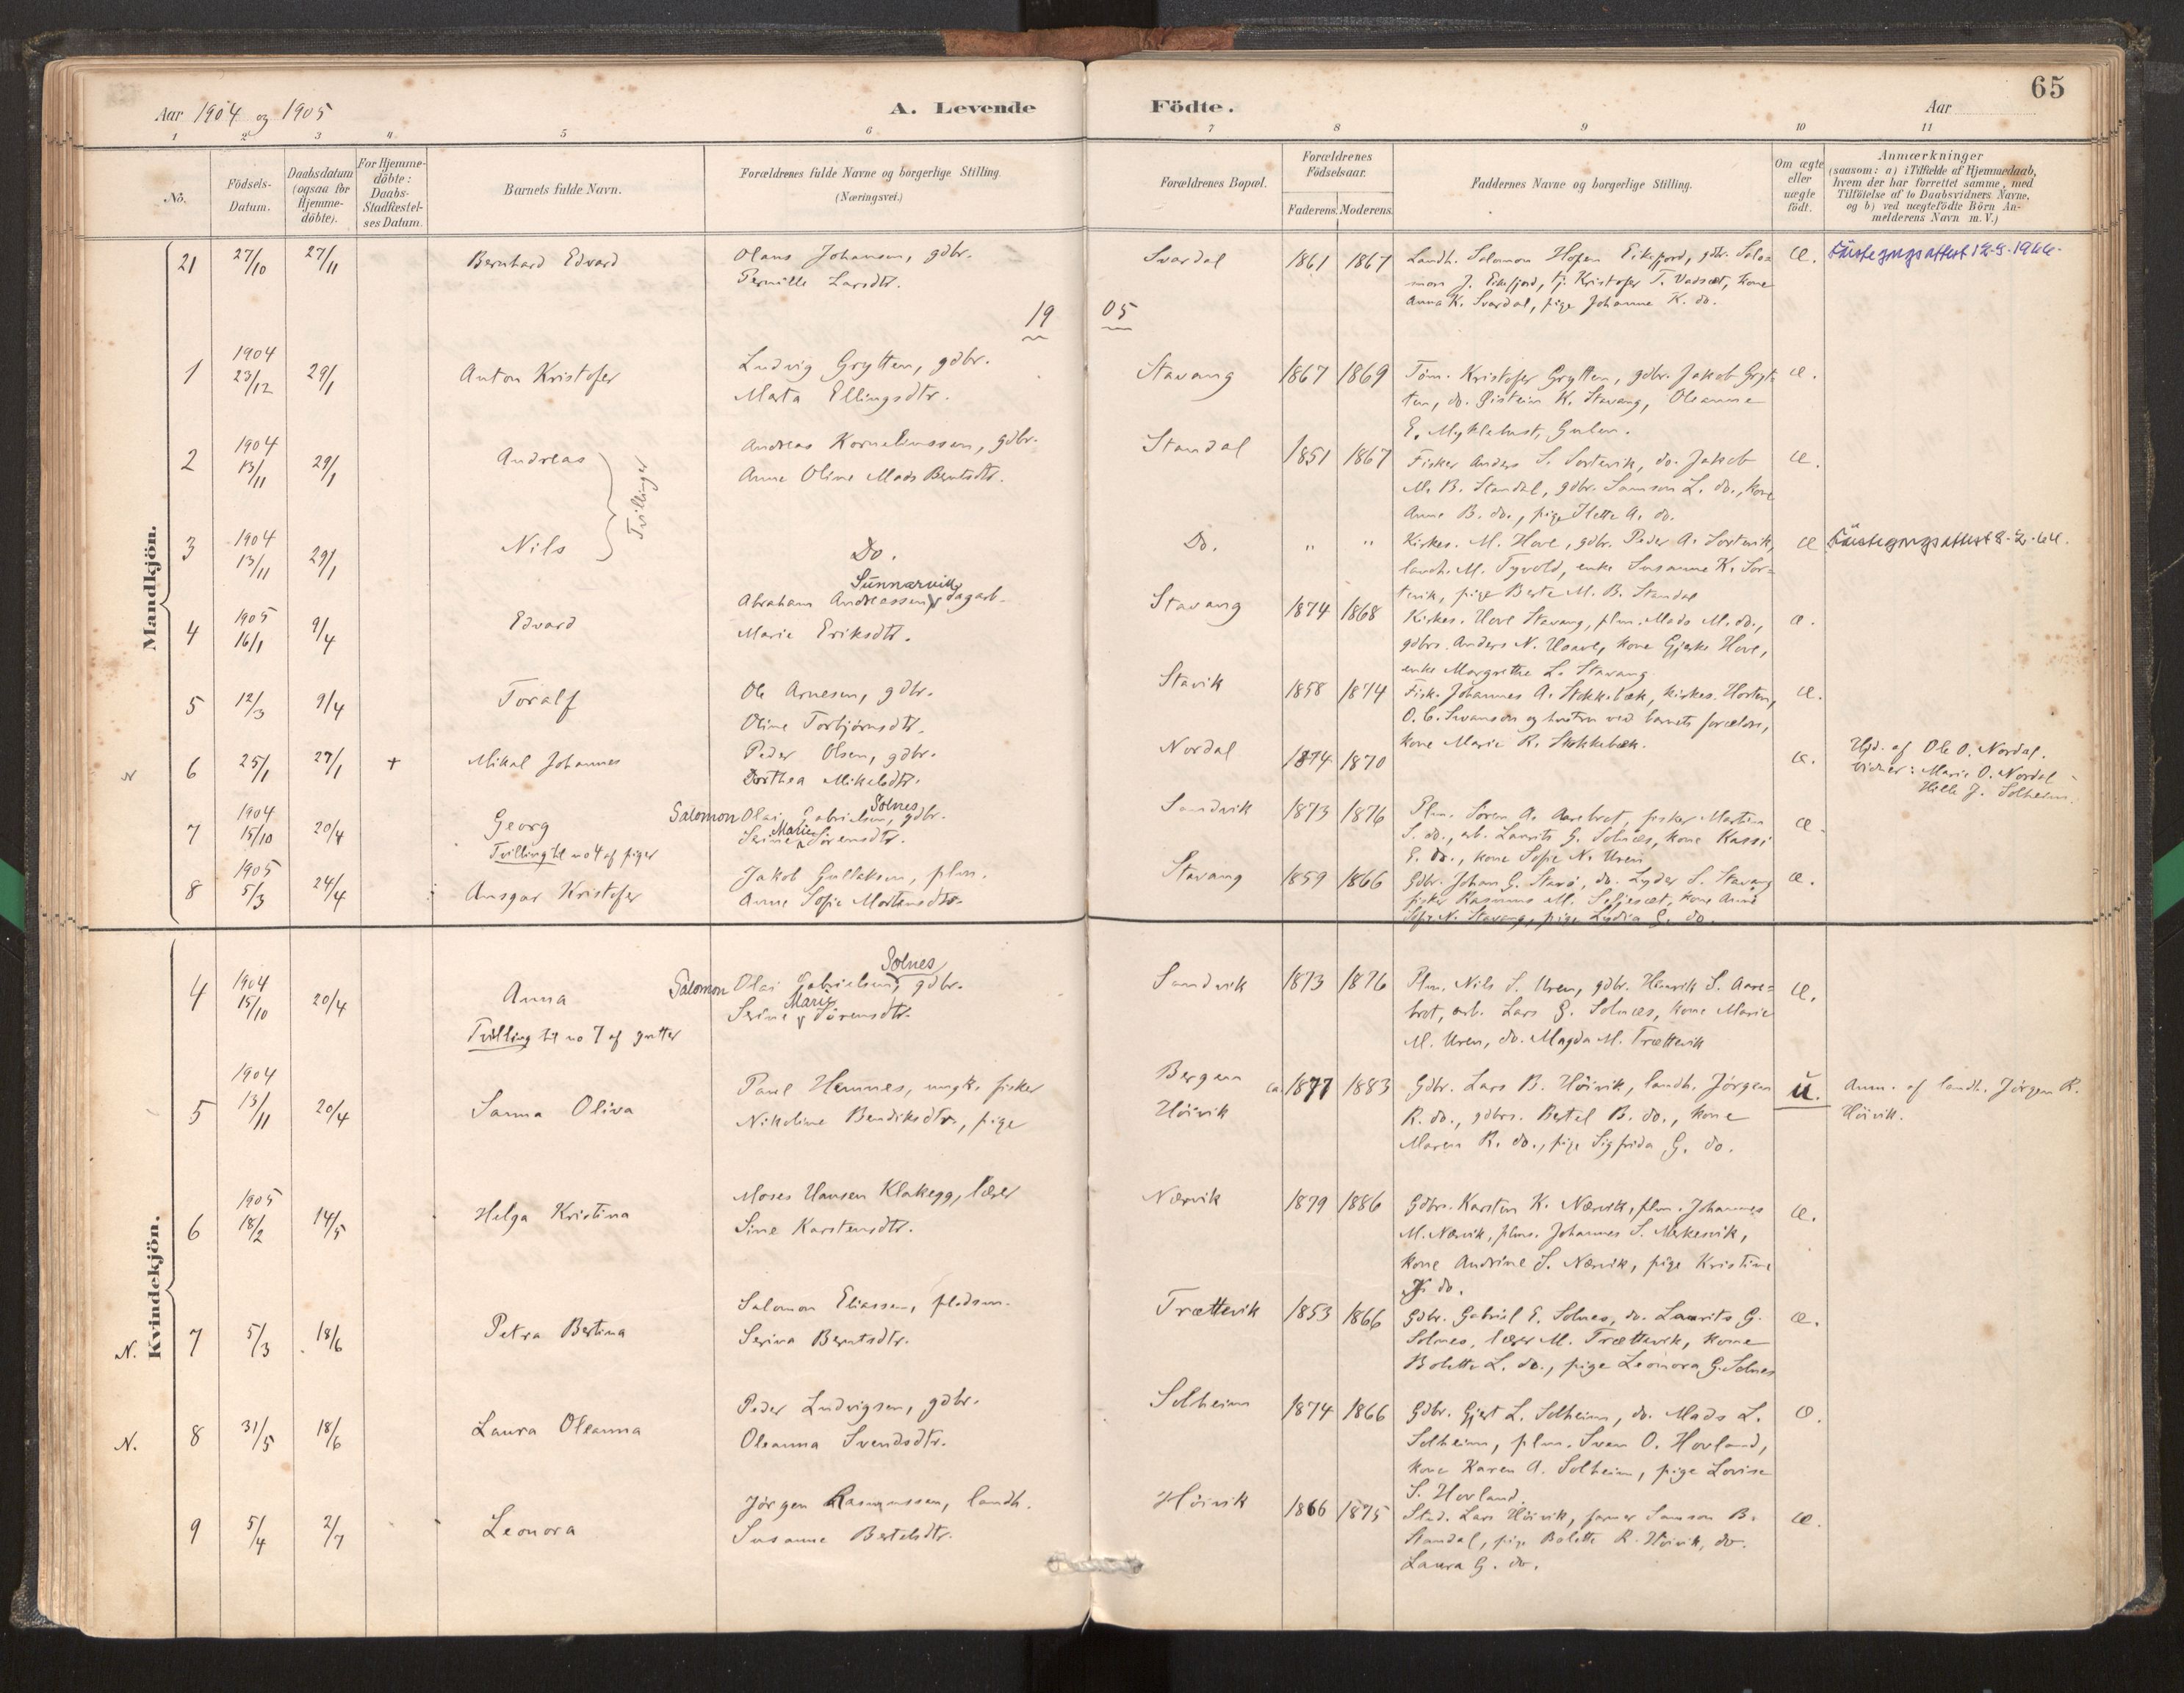 65
Aar 1904 og 1905
A. Levende Födte.
Aar
1 2 3 4 5 6 7 8 9 10 11
No.
Födsels-Datum.
Daabsdatum (ogsaa for Hjemme-döbte).
For Hjemme-döbte: Daabs-Stadfæstel-ses Datum.
Barnets fulde Navn.
Forældrenes fulde Navne og borgerlige Stilling (Næringsvei.)
Forældrenes Bopæl.
Forældrenes Födselsaar.
Faderens. Moderens.
Faddernes Navne og borgerlige Stilling.
Om ægte eller uægte födt.
Anmærkninger
(saasom: a) i Tilfælde af Hjemmedaab, hvem der har forrettet samme, med Tilföielse af to Daabsvidners Navne, og b) ved uægtefödte Börn An-melderens Navn m. V.)
Mandkjön.
21 27/10 27/11 Bernhard Edvard Olaus Johansen, gdbr. Svardal 1861 1867 Landh. Salomon Hofen Eikefjord, gdbr. Salo= æ.
Pernille Larsdtr. mon J. Eikefjord, tj. Kristofer T. Vadsæt, kone
Anna K. Svardal, pige Johanne K. do.
19 05
1 1904 23/12 29/1 Anton Kristofer Ludvig Grytten, gdbr. Stavang 1867 1869 Töm. Kristofer Grytten, gdbr. Jakob Gryt= æ.
Marta Ellingsdtr. ten, do. Øistein K. Stavang, Oleanne
E. Myklebust, Gulen.
2 1904 13/11 29/1 Andreas Andreas Korneliussen, gdbr. Standal 1851 1867 Fisker Anders S. Sortevik, do. Jakob æ.
Tvillinger
Anne Oline Mads Berntsdtr. M. B. Standal, gdbr. Samson L. do., kone
Anne B. do., pige Mette A. do.
3 1904 13/11 29/1 Nils Do. Do. " " Kirkes. M. Hove, gdbr. Peder A. Sortevik, æ
landh. M. Tyvold, enke Susanne K. Sor=
tevik, pige Berte M. B. Standal
4 1905 16/1 9/4 Edvard Abraham Andreassen Sunnarvik, dagarb. Stavang 1874 1868 Kirkes. Hove Stavang, plm. Mads M. do., æ.
Marie Eriksdtr. gdbrs. Anders N. Haave, kone Gjerke Hove,
enke Margrethe L. Stavang
5 12/3 9/4 Toralf Ole Arnesen, gdbr. Stavik 1858 1874 Fisk. Johannes A. Stokkebæk, kirkes. Horten, æ.
Oline Torbjørnsdtr. O. C. Svanson og hustru ved barnets forældre,
kone Marie R. Stokkebæk.
N 6 25/1 27/1 + Mikal Johannes Peder Olsen, gdbr. Nordal 1874 1870 æ. Hjd. af Ole O. Nordal.
Dorthea Mikalsdtr. Vidner: Marie O. Nordal
Hille J. Solheim.
7 1904 15/10 20/4 Georg Salomon Olai Gabrielsen Solnes, gdbr. Sandvik 1873 1876 Plm. Søren A. Aarebrot, fisker Martin æ.
Tvilling til no 4 af piger Serine Marie Sørensdtr. S. do., arb. Laurits G. Solnæs, kone Kassi
E. do., kone Sofie N. Uren
8 1905 5/3 24/4 Ansgar Kristofer Jakob Gullaksen, plm. Stavang 1859 1866 Gdbr. Johan G. Starø, do. Lyder S. Stavang æ.
Anne Sofie Mortensdtr. fisker Rasmus M. kone Anne
Sofie N. Stavang, pige Lydia G. do.
Kvindekjön.
4 1904 15/10 20/4 Anna Salomon Olai Gabrielsen Solnes, gdbr. Sandvik 1873 1876 Plm. Nils S. Uren, gdbr. Henrik S. Aare= æ.
Serine Marie Sørensdtr. brot, arb. Lars G. Solnæs, kone Marie
Tvilling til no 7 af gutter M. Uren, do. Magda M. Trættevik
5 1904 13/11 20/4 Sanna Oliva Paul Hemnes, ungk. fisker Bergen ca 1877 1883 Gdbr. Lars B. Höivik, landh. Jörgen u. Anm. af landh. Jörgen R.
Nikoline Bendiksdtr., pige Höivik R. do., gdbrs. Bertel B. do., kone Höivik.
Maren R. do., pige Sigfrida G. do.
6 1905 18/2 14/5 Helga Kristina Moses Hansen Klakegg, lærer Nærvik 1879 1886 Gdbr. Karsten K. Nærvik, plm. Johannes æ.
Sine Karstensdtr. M. Nærvik, plms. Johannes S. Merkesvik,
kone Andrine S. Nærvik, pige Kristine
K. do.
N. 7 5/3 18/6 Petra Bertina Salomon Eliassen, pladsm. Trættevik 1853 1866 Gdbr. Gabriel E. Solnes, do. Laurits G. æ.
Serina Berntsdtr. Solnes, lærer M. Trættevik, kone
Bolette L. do., pige Leonora G. Solnes
N. 8 31/5 18/6 Laura Oleanna Peder Ludvigsen, gdbr. Solheim 1874 1866 Gdbr. Gjert L. Solheim, do. Mads L. æ.
Oleanna Svendsdtr. Solheim, plm. Sven O. Hovland,
kone Karen A. Solheim, pige Lovise
S. Hovland.
9 5/4 2/7 Leonora Jörgen Rasmussen, landh. Höivik 1866 1875 Stud. Lars Höivik, farver Samson B. æ.
Susanne Bertelsdtr. Standal, pige Bolette R. Höivik, do.
Laura G. do.